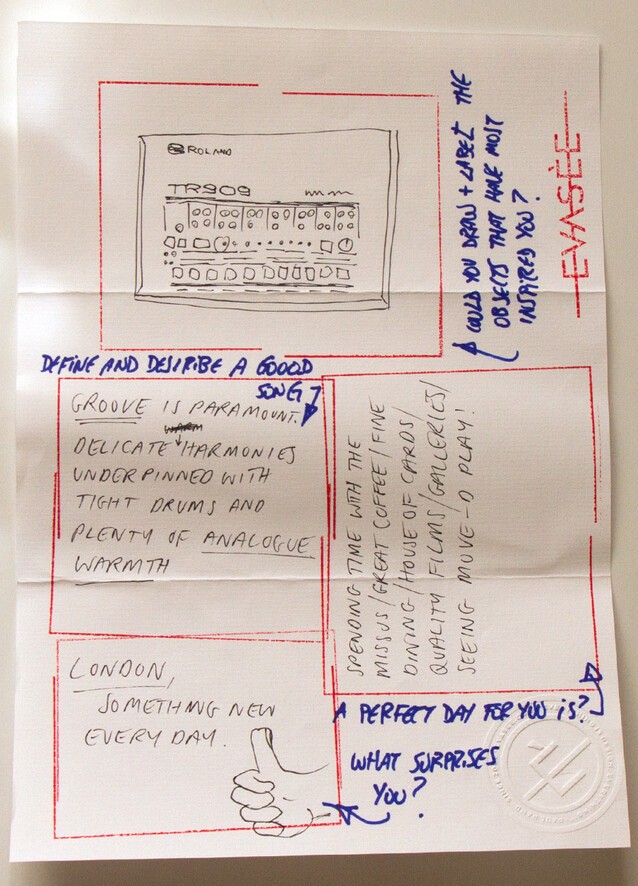 COULD YOU DRAW + LABEL THE
OBJECTS THAT HAVE MOST
INSPIRED YOU?
EVASÈE
ROLAND
TR909
DEFINE AND DESCRIBE A GOOOD
SONG
GROOVE IS PARAMOUNT.
WARM
DELICATE HARMONIES
UNDERPINNED WITH
TIGHT DRUMS AND
PLENTY OF ANALOGUE
WARMTH
SPENDING TIME WITH THE
MISSUS/GREAT COFFEE/FINE
DINING/HOUSE OF CARDS/
QUALITY FILMS/GALLERIES/
SEEING MOVE-D PLAY!
A PERFECT DAY FOR YOU IS?
LONDON,
SOMETHING NEW
EVERY DAY.
WHAT SURPRISES
YOU?